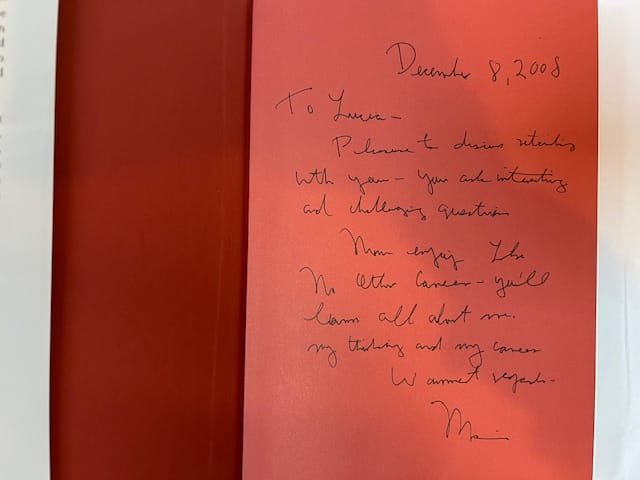 December 8, 2008
To Lucia -
Pleasure to discuss retailing
with you - You ask interesting
and challenging questions
Now enjoy Like
No Other Career - you'll
learn all about me.
my thinking and my career
Warmest regards -